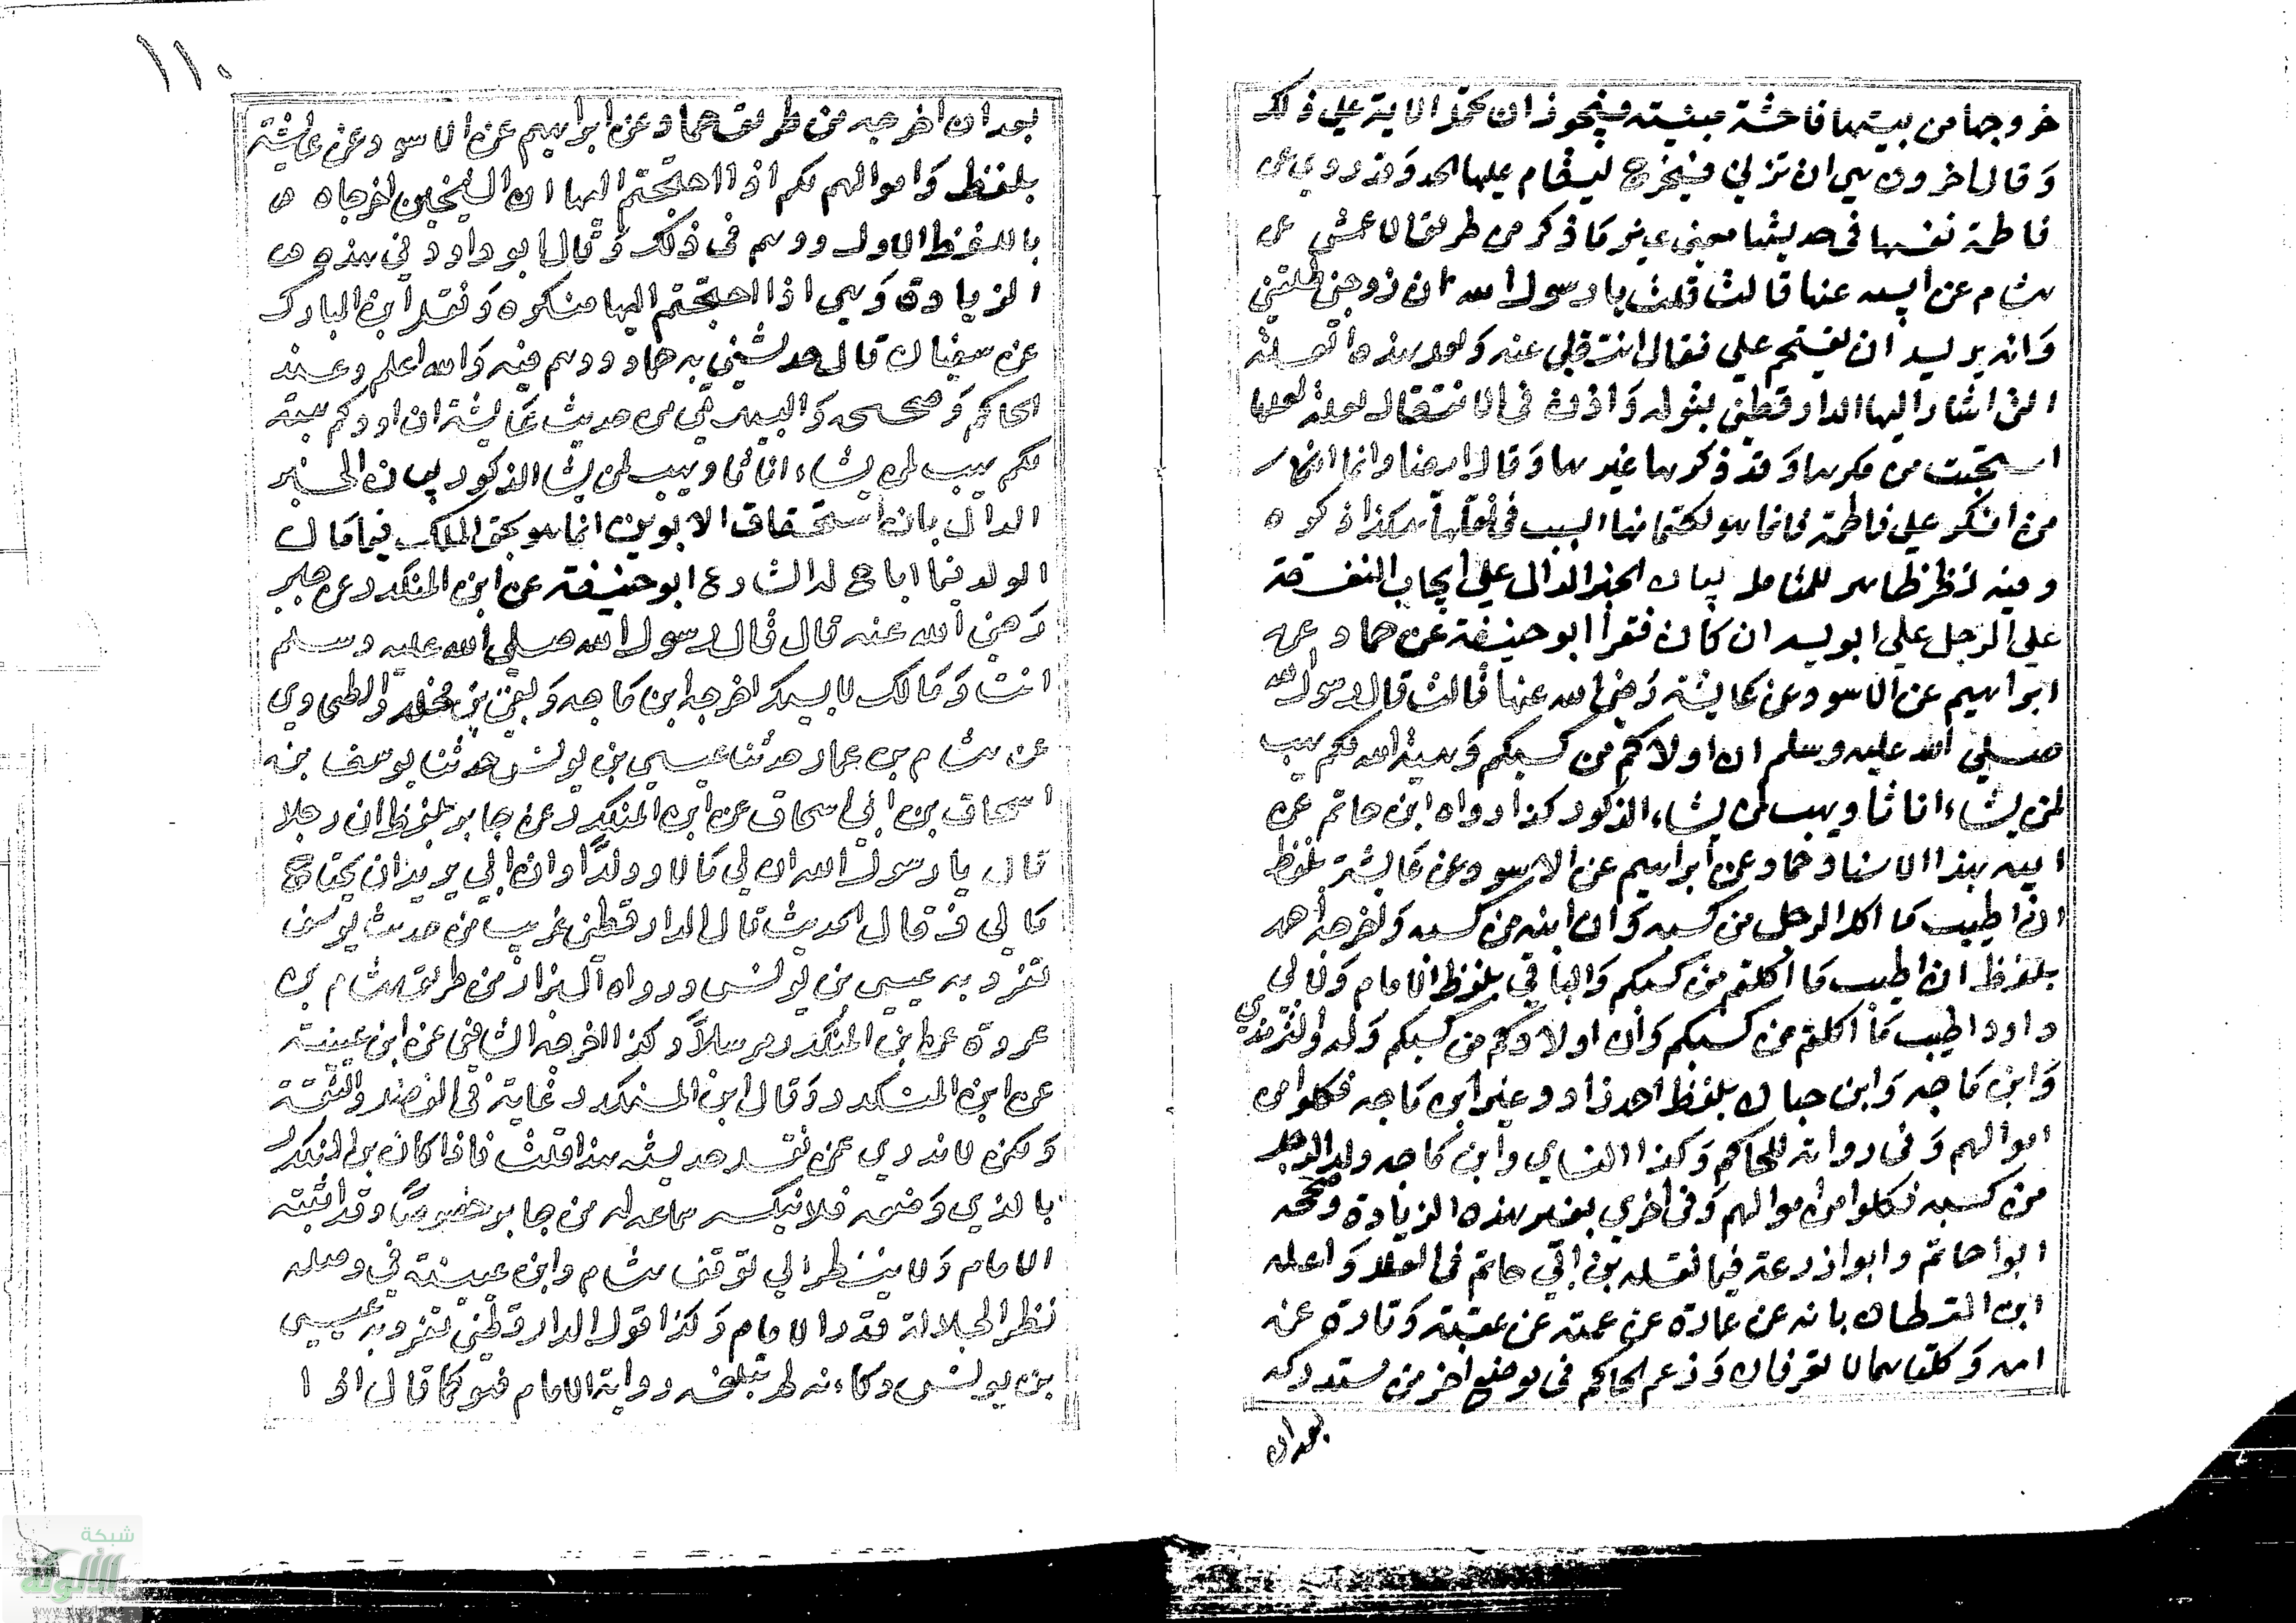 خروجها من بيتها فاحشة مبينة فيجوز ان تحمل الاية علي ذلك
وَقال اخرون هي ان تزني فيخرج ليقام عليها الحد وَقد روي عن
فاطمة نفسها في حديثها معني غير مَا ذكر من طريق الاعمش عن
هشام عن ابيه عنها قالت قلت يا رسول الله ان زوجي طلقني
وَانه يريد ان يقتحم علي فقال انتقلي عنه وَلعل هذه العلة
التي اشار اليها الدارقطني بقوله وَاذن في الانتقال لعلة لعلها
استحيت من ذكرها وَقد ذكرها غيرها وَقال ايضا وانما انكار
من انكر علي فاطمة فانما هو لكتمانها السبب في نقلها هكذا ذكره
وفيه نظر ظاهر للمتامل بيان الخبر الدال علي ايجاب النفقة
علي الرجل علي ابويه ان كان فقرا ابو حنيفة عن حماد عن
ابراهيم عن الاسود عن عَايشة رَضي الله عنها قالت قال رسول الله
صلي الله عليه وسلم ان اولادكم من كسبكم وَهبة الله لكم يهب
لمن يشاء اناثا ويهب لمن يشاء الذكور كذا رواه ابن حاتم عن
ابيه بهذا الاسناد حماد عن ابراهيم عن الاسود عن عَايشة بلفظ
ان اطيب مَا اكل الرجل من كسبه وَان ابنه من كسبه وَاخرجه احمد
بلفظ ان اطيب مَا اكلتم من كسبكم وَالباقي بلفظ الامام وَلابي
داود اطيب مَا اكلتم من كسبكم وَان اولادكم من كسبكم وَله وَالترمذي
وَابن مَاجه وَابن حبان بلفظ احمد زاد وغير ابن مَاجه فكلوا من
اموالهم وَفي رواية للحاكم وَكذا النساي وابن مَاجه ولد الرجل
من كسبه فكلوا من اموالهم وَفي اخري بغير هذه الزيادة وصححه
ابوا حاتم وابوا زرعة فيما نقله بن ابي حاتم في العلل وَاعله
ابن القطان بانه عن عمارة عن عمته عن عقبة وَتارة عن
امه وَكلتاهما لا تعرفان وَزعم الحاكم في موضع اخر من مستدركه
بعد ان
١١٠
بعد ان اخرجه من طريق حماد عن ابراهيم عن الاسود عن عايشة
بلفظ وَاموالهم لكم اذا احتجتم اليها ان الشيخين اخرجاه
باللفظ الاول ووهم في ذلك وَقال ابو داود في هذه
الزيادة وَهي اذا احتجتم اليها منكره وَنقل ابن المبارك
عن سفيان قال حدثني به حماد ووهم فيه وَالله اعلم وعند
الحاكم وَصححه وَالبيهقي من حديث عَايشة ان اولادكم هبة
لكم يهب لمن يشاء اناثا ويهب لمن يشا الذكور بيان الخبر
الدال بان استحقاق الابوين انما هو بحق الملك فيما مَال
الولد فيما اباح له الشارع ابو حنيفة عن ابن المنكدر عن جابر
رَضي الله عنه قال قال رسول الله صلي الله عليه وسلم
انت وَمَالك لابيك اخرجه ابن مَاجه وَبقي بن مخلد وَالطحاوي
عن هشام بن عمار حدثنا عيسي بن يونس حدثنا يوسف بن
اسحاق بن ابي اسحاق عن ابن المنكدر عن جابر بلفظ ان رجلا
قال يا رسول الله ان لي مَالا وولدًا وان ابي يريد ان يحتاج
مَالي فذقال الحديث قال الدارقطني غريب من حديث يوسف
تفرد به عيسي بن يونس ورواه البزار من طريق هشام بن
عروة عن ابن المنكدر مرسلاً وكذا اخرجه الشافعي عن ابن عيينة
عن ابن المنكدر وَقال ابن المنكدر غاية في الفضل والثقة
وَلكن لا ندري عمن نقل حديثه هذا قلت فاذا كان بن المنكدر
بالذي وَصفه فلا نكير سماعه له من جابر خصوصًا وقد اثبته
الامام وَلا ينظر الي توقف هشام وابن عيينة في وصله
نظرا لجلالة قدر الامام وَكذا قول الدارقطني تفرد به عيسي
بن يونس وكاءنه لم تبلغه رواية الامام فهو كما قال اذ ا
شبكة
الألوكة